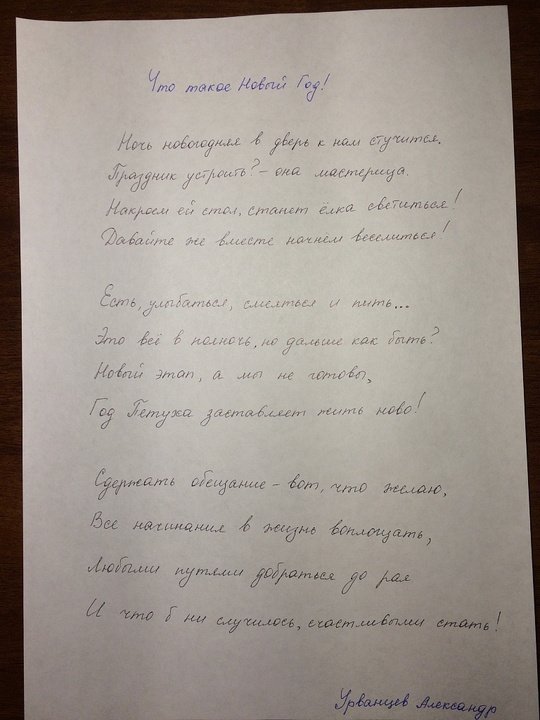 Что такое Новый Год!
Ночь новогодняя в дверь к нам стучится.
Праздник устроить? – она мастерица.
Накроем ей стол, станет ёлка светиться!
Давайте же вместе начнём веселиться!
Есть, улыбаться, смеяться и пить...
Это всё в полночь, но дальше как быть?
Новый этап, а мы не готовы,
Год Петуха заставляет жить ново!
Сдержать обещание – вот, что желаю,
Все начинания в жизнь воплощать,
Любыми путями добраться до рая
И что б ни случилось, счастливыми стать!
Урванцев Александр